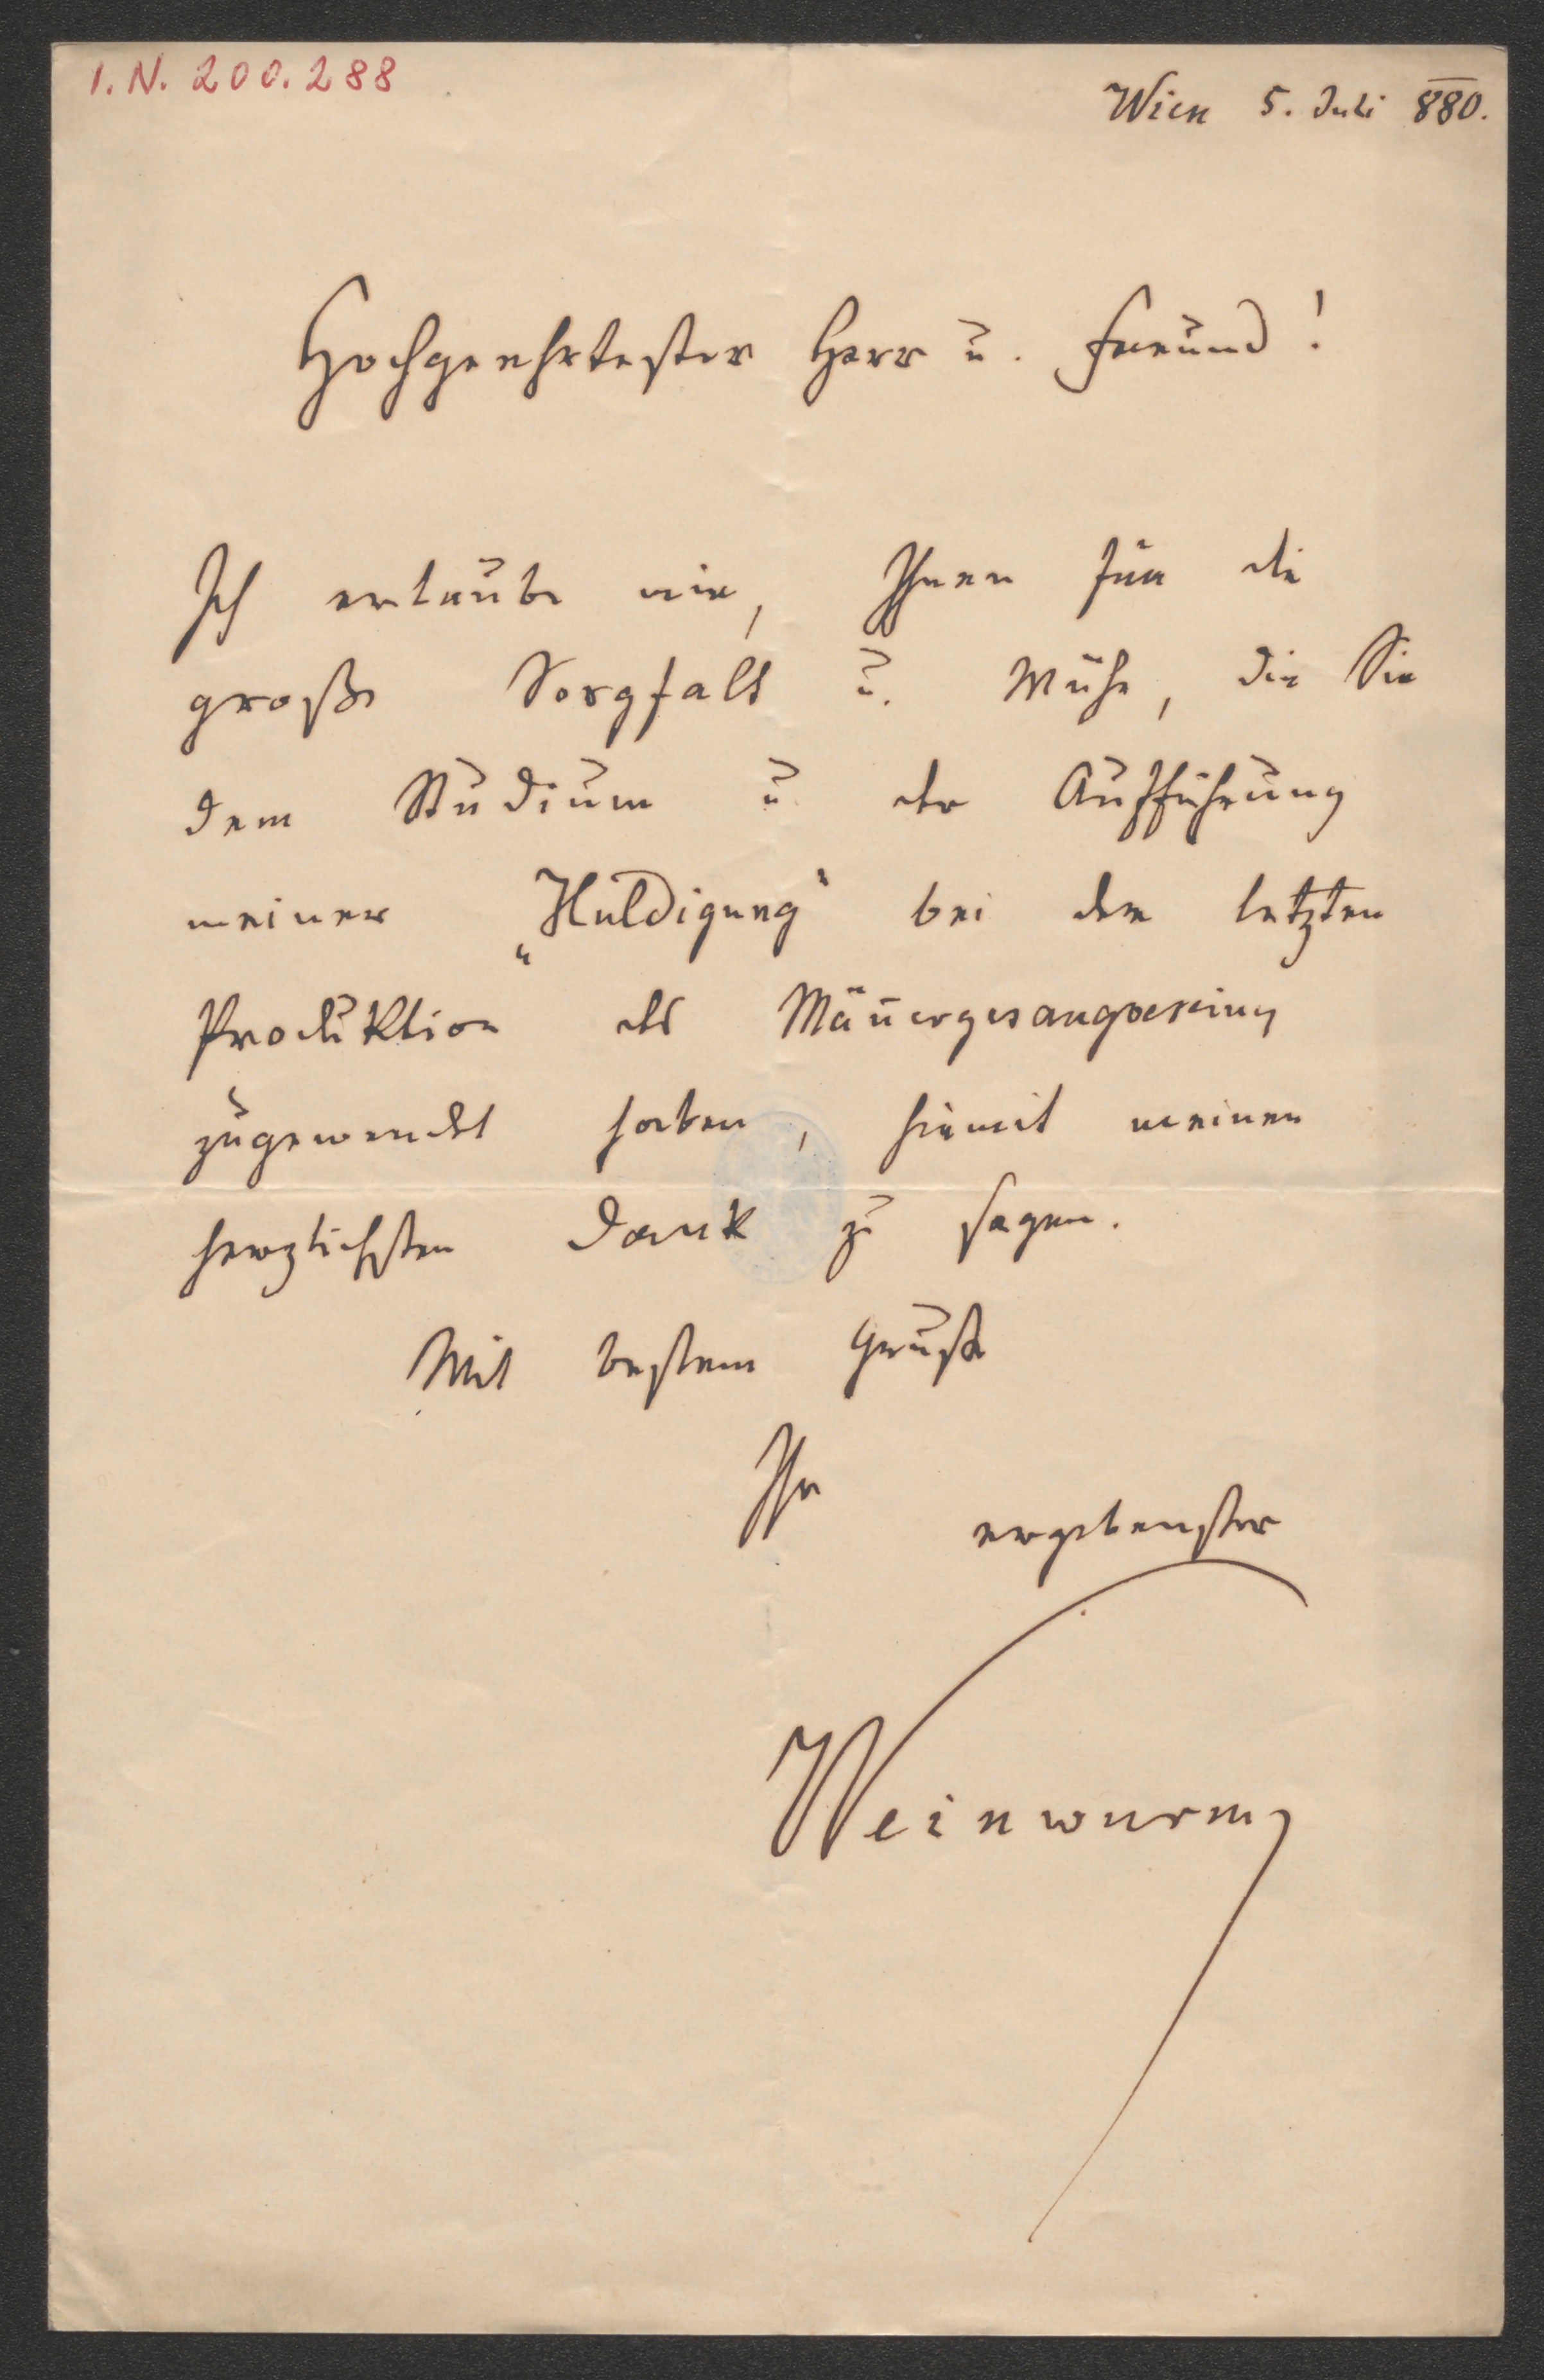 I.N. 200.288
Wien 5. Juli 880.
Hochgeehrtester Herr u. Freund!
Ich erlaube mir, Ihnen für die
große Sorgfalt u. Mühe, die Sie
dem Studium u. der Aufführung
meiner „Huldigung“ bei der letzten
Produktion des Män̄ergesangverein
zugewendet haben, hiemit meinen
herzlichsten Dank zu sagen.
Mit bestem Gruße
Ihr
ergebenster
Weinwurm